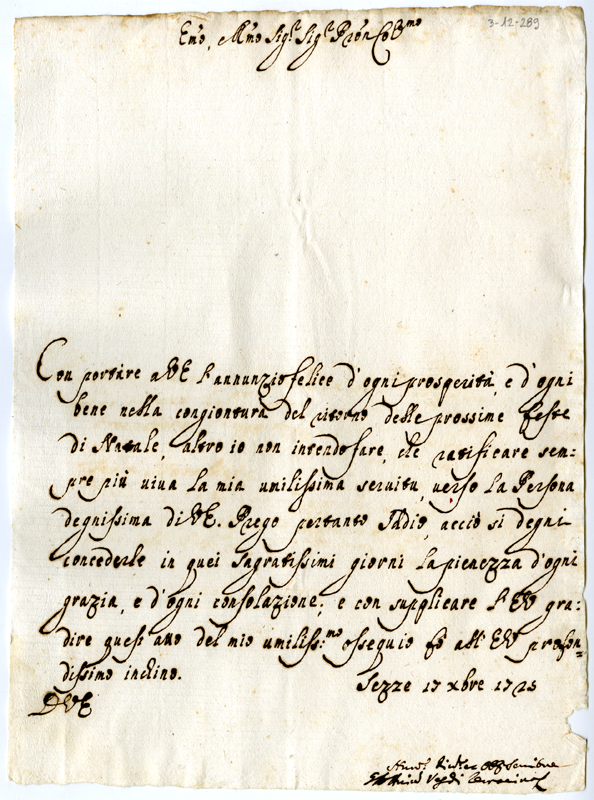 3-12-289
Em̃o, e Rm̃o Sig.r Sig.r Prõn Col̃mo
Con portare a VE l'annunzio felice d'ogni prosperità, e d'ogni
bene nella congiontura del ritorno delle prossime feste
di Natale, altro io non intendo fare, che ratificare sem=
pre più viva la mia umilissima servitu, verso la Persona
degnissima di VE. Prego pertanto Iddio, acciò si degni
concederle in quei sagratissimi giorni la pienezza d'ogni
grazia, e d'ogni consolazione; e con supplicare l'EV gra=
dire quest'atto del mio umiliss:mo ossequio fò all'EV profon=
dissimo inchino.
Sezze 17 xbre 1725
DVE